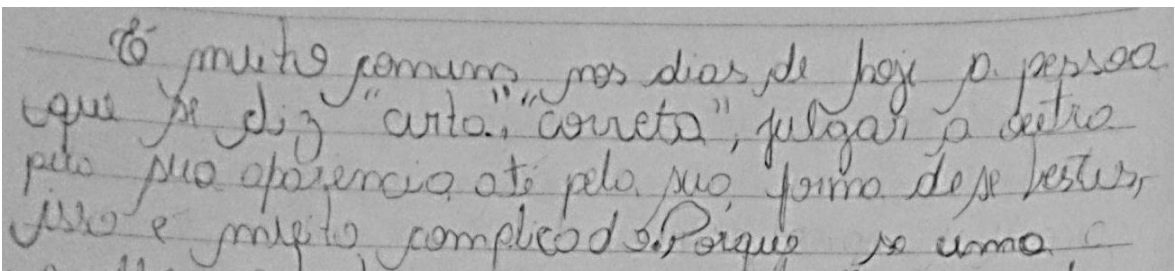 É muito comum nos dias de hoje a pessoa
que se diz "certa", "correta", julgar a outra
pela sua aparencia até pela sua forma de se vestir,
isso é muito complicado. Porque se uma